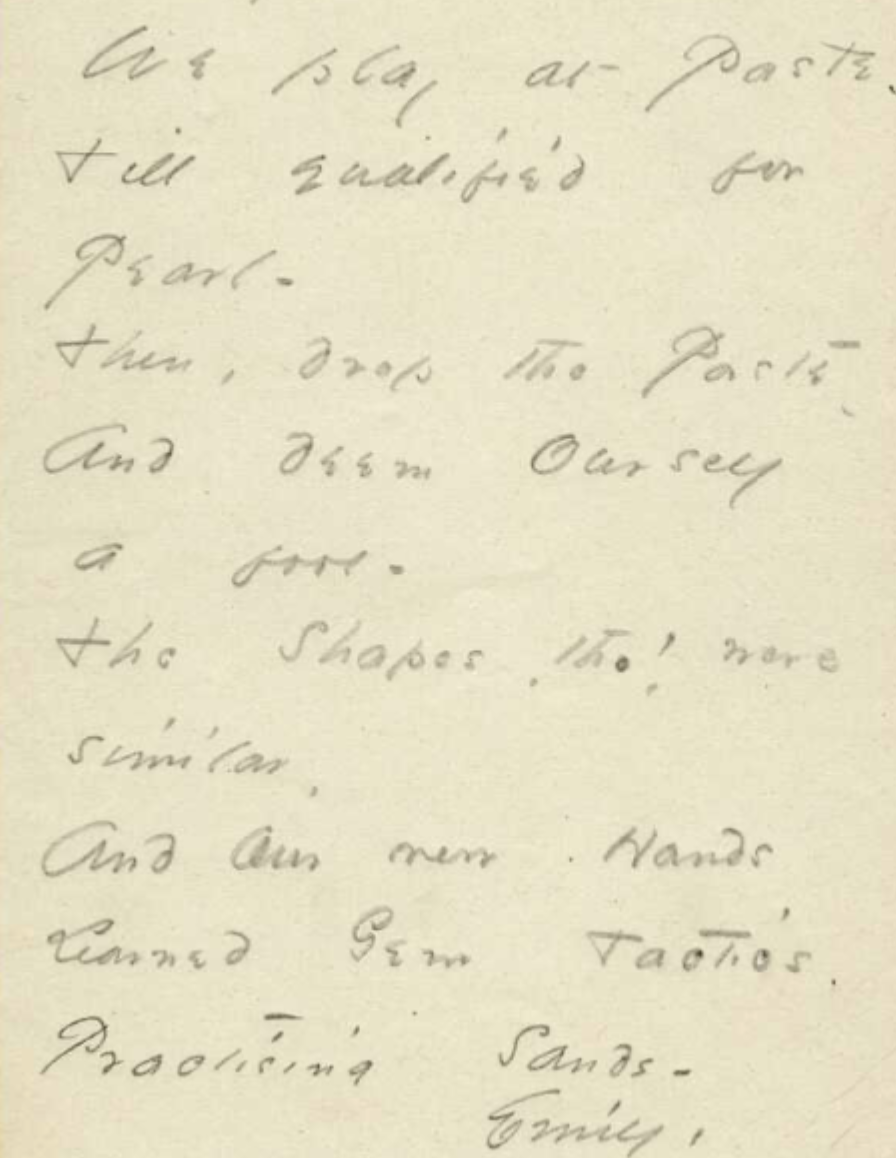 We play at Paste,
till qualified for
Pearl -
then, drop the Paste,
And deem Ourself
a fool -
the Shapes, tho', were
similar,
And Our new Hands
Learned Gem Tactics,
Practising Sands -
Emily.